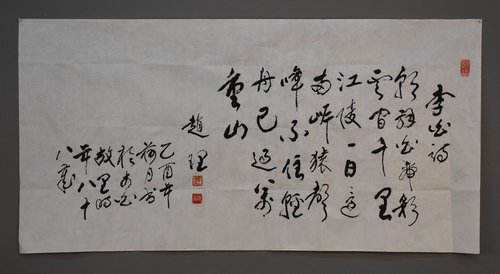 李白诗
朝辞白帝彩
云间千里
江陵一日还
两岸猿声
啼不住轻
舟已过万
重山
趙理
乙酉年
荷月书
於
故里时
年八十
八岁